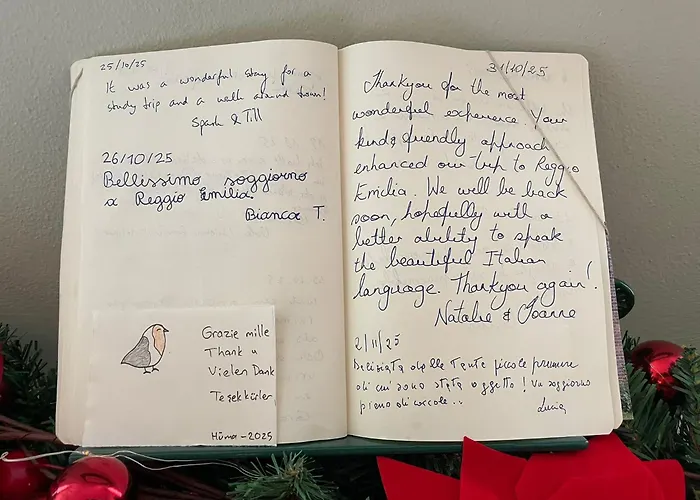 25/10/25
It was a wonderful stay for a
study trip and a walk around town!
Spark & Till
26/10/25
Bellissimo soggiorno
a Reggio Emilia.
Bianca T.
Grazie mille
Thank u
Vielen Dank
Teşekkürler
Hüma - 2025
31/10/25
Thankyou for the most
wonderful experience. Your
kind & friendly approach
enhanced our trip to Reggio
Emilia. We will be back
soon, hopefully with a
better ability to speak
the beautiful Italian
language. Thankyou again!
Natalie & Joanne
2/11/25
Deliziata dalle tante piccole premure
di cui sono stata oggetto! Un soggiorno
pieno di coccole..
Lucia